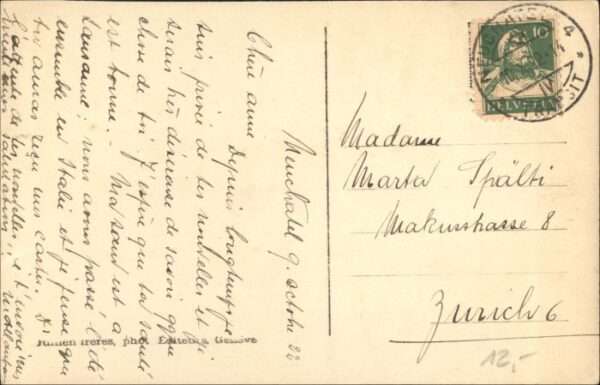 Neuchatel 9. octobre 23
Chère amie
Depuis longtemps je
suis privé de tes nouvelles et je
serais très désireuse de savoir quelque
chose de toi. J'espère que ta santé
est bonne. Ma santé est à
Lausanne: nous avons passé l'été
ensemble en Italie et je pense que
tu auras reçu mes cartes. J'
attends de tes nouvelles et t'envoie mes
meilleures salutations.
Jullien frères, phot. Editeurs, Genève
10
HELVETIA
TRANSIT
Madame
Marta Spälti
Makusstrasse 8
Zurich 6
12,-